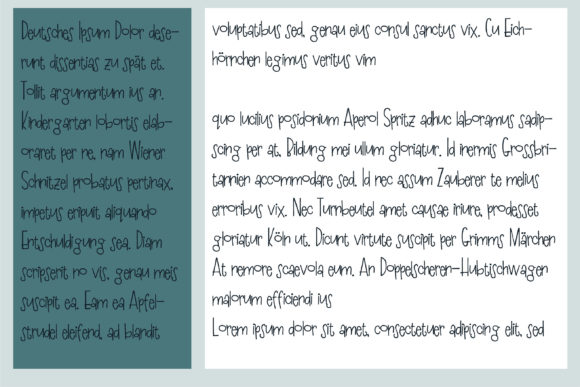 Deutsches Ipsum Dolor dese-
runt dissentias zu spät et.
Tollit argumentum ius an.
Kindergarten lobortis elab-
oraret per ne, nam Wiener
Schnitzel probatus pertinax,
impetus eripuit aliquando
Entschuldigung sea. Diam
scripserit no vis, genau meis
suscipit ea. Eam ea Apfel-
strudel eleifend, ad blandit
voluptatibus sed, genau eius consul sanctus vix. Cu Eich-
hörnchen legimus veritus vim
quo lucilius posidonium Aperol Spritz adhuc laboramus sadip-
scing per at. Bildung mei ullum gloriatur. Id inermis Grossbri-
tannien accommodare sed. Id nec assum Zauberer te melius
erroribus vix. Nec Turnbeutel amet causae iriure, prodesset
gloriatur Köln ut. Dicunt virtute suscipit per Grimms Märchen
At nemore scaevola eum. An Doppelscheren-Hubtischwagen
malorum efficiendi ius
Lorem ipsum dolor sit amet, consectetuer adipiscing elit, sed